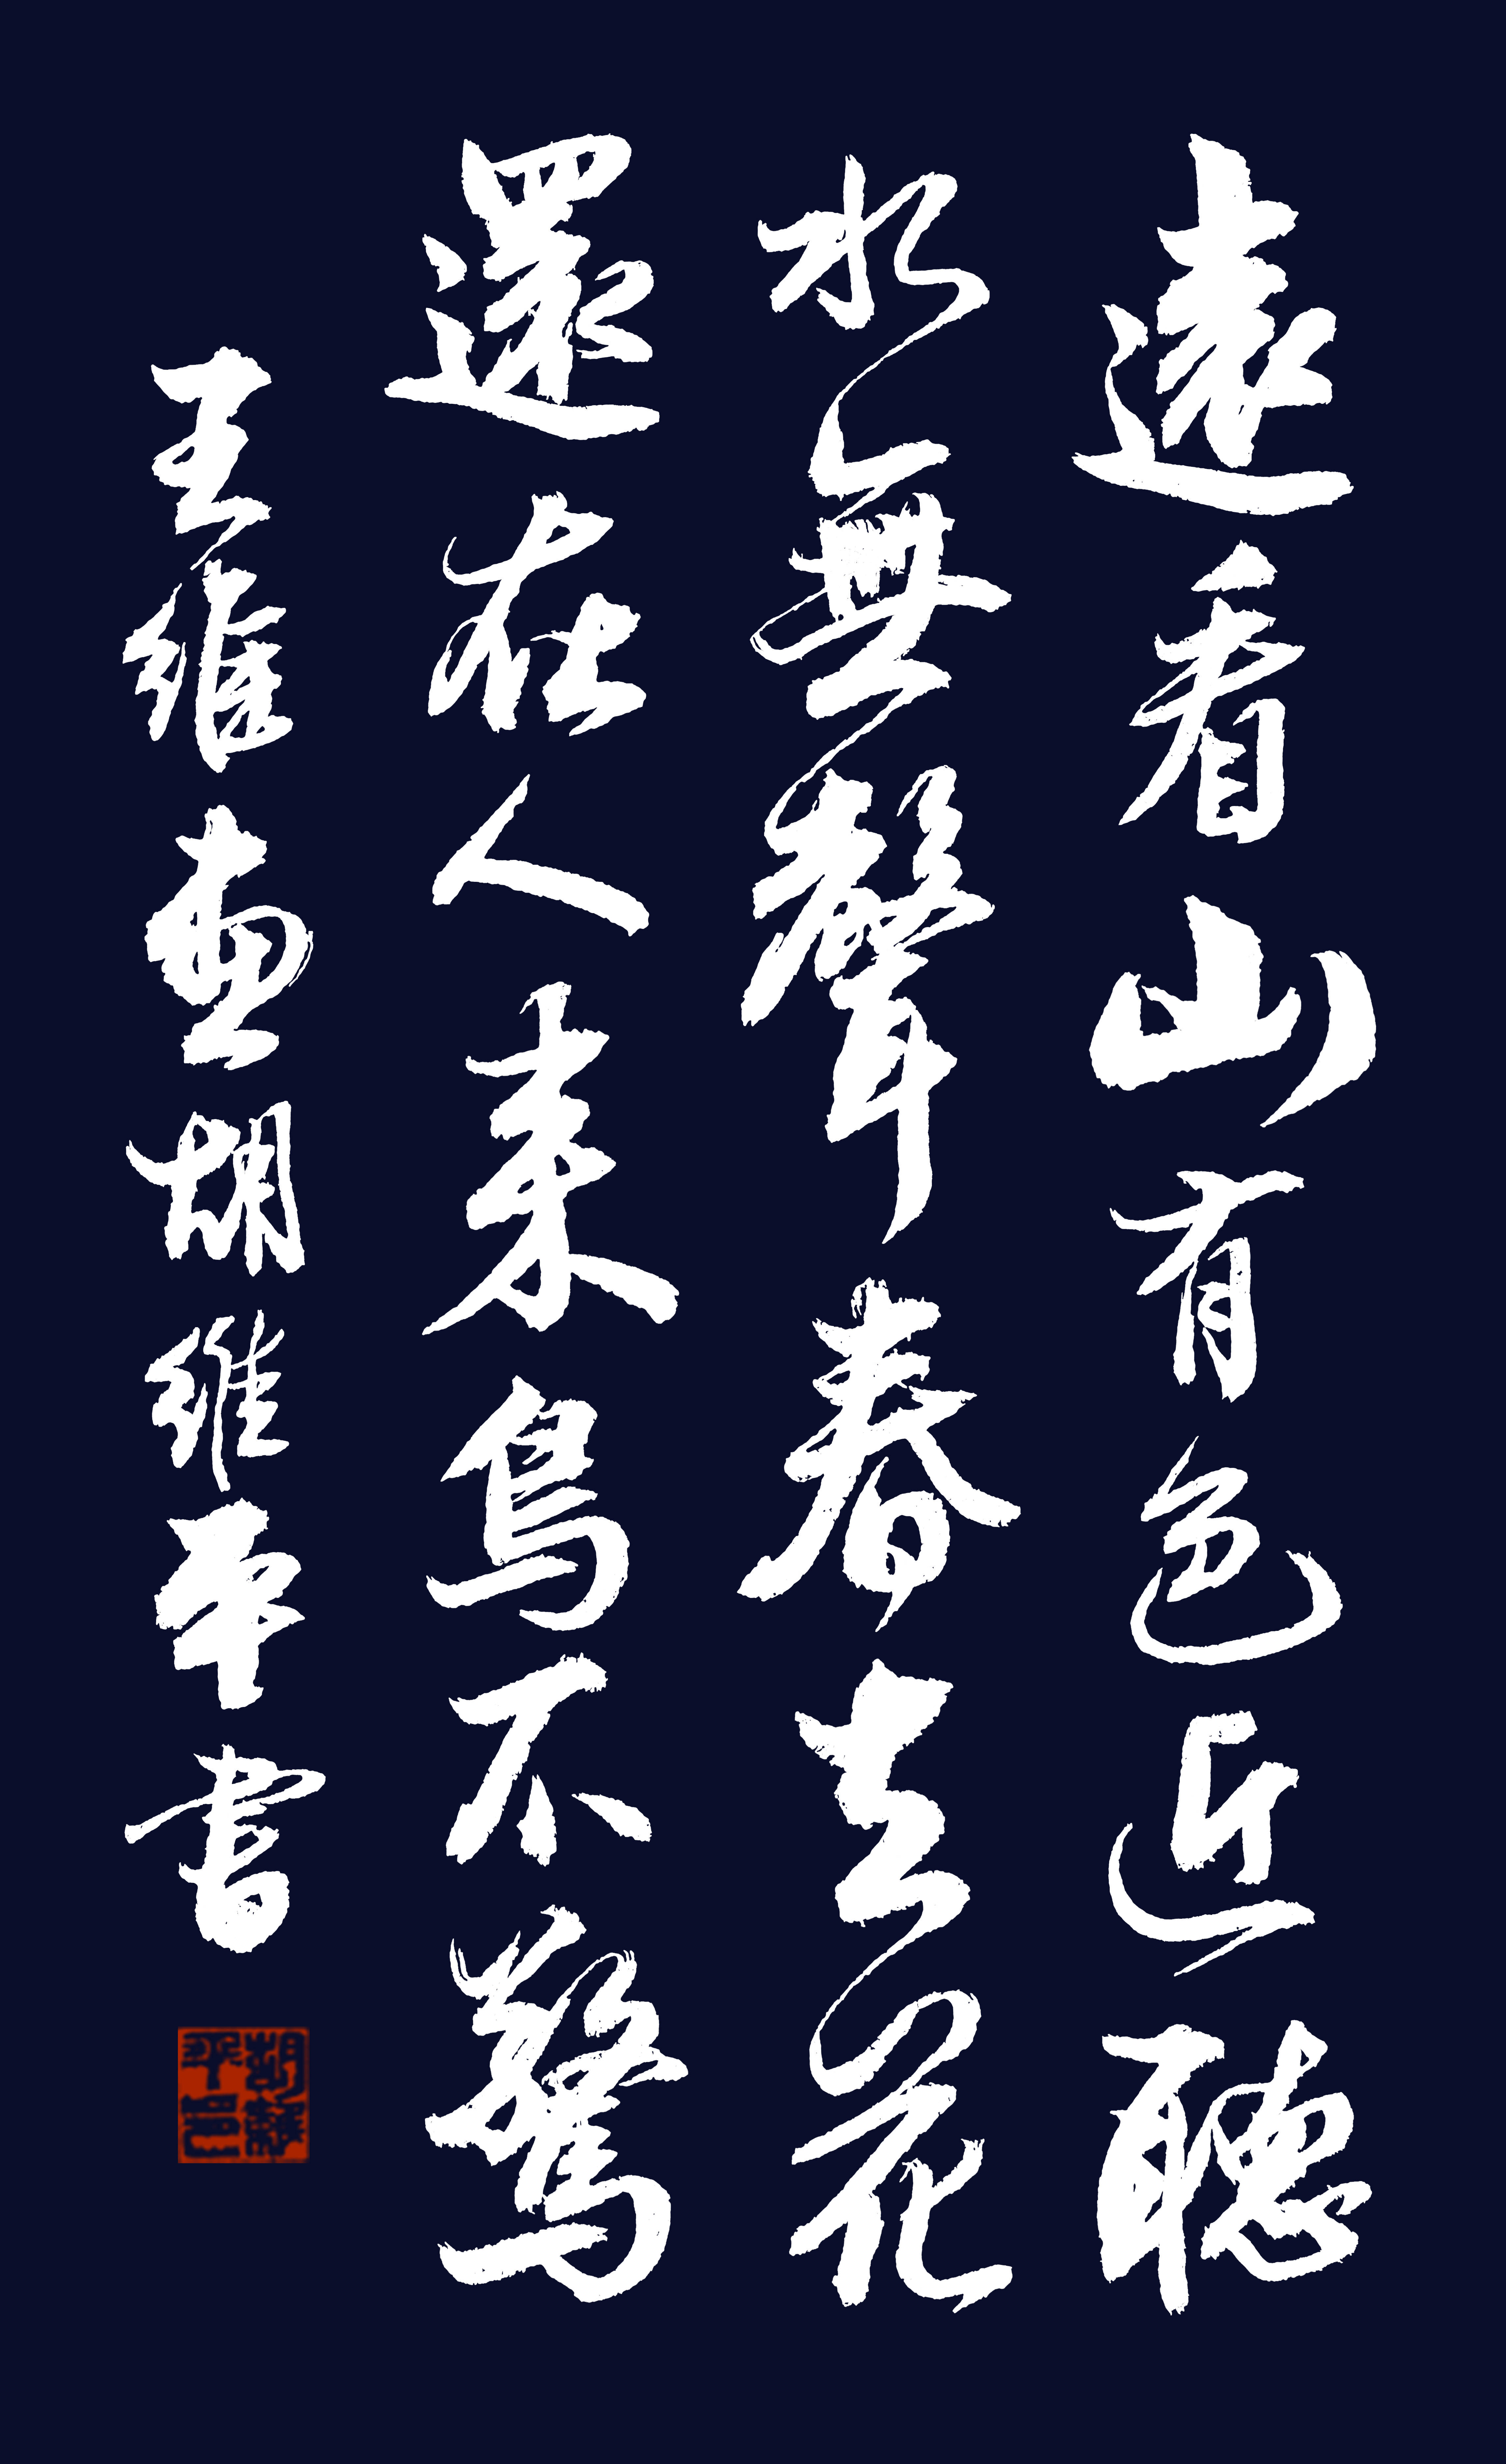 遠看山有色近聽
水無聲春去花
還在人来鳥不驚
王維畫胡維平書
胡維平印